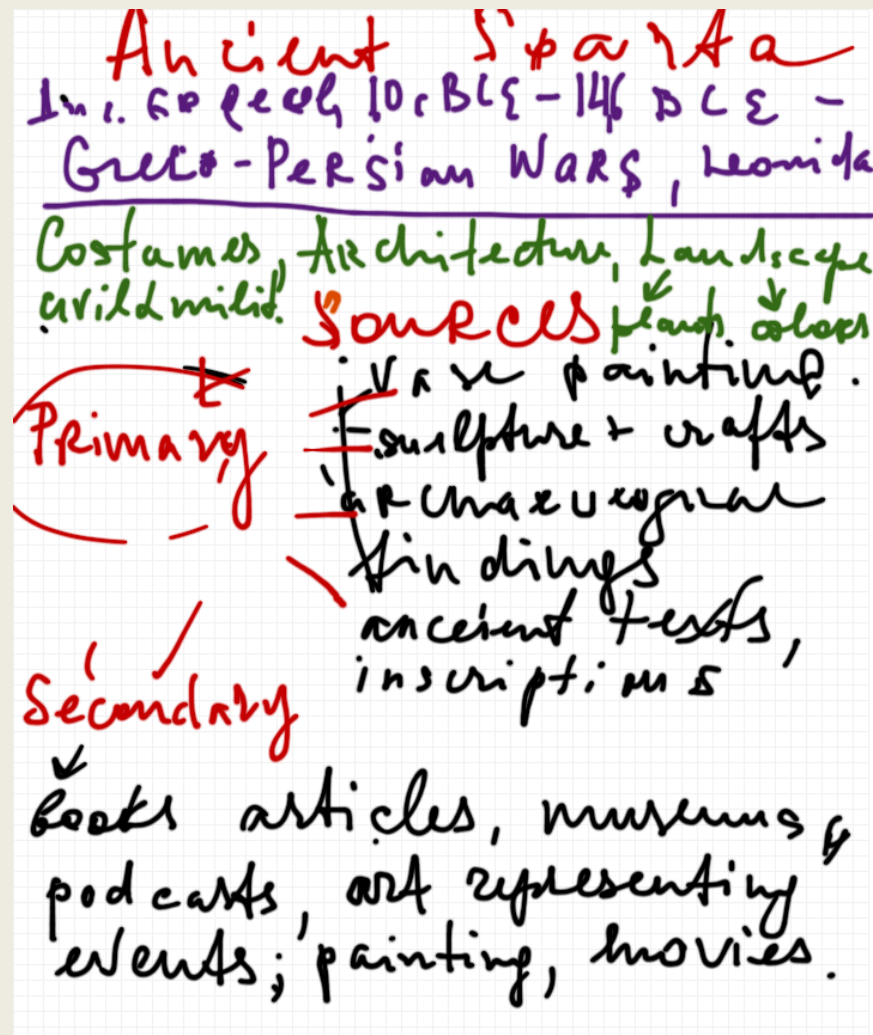 Ancient Sparta
10c BCE - 146 BCE -
Greco-Persian Wars, Leonida
Costames, Architecture, Landscape
civil milit.
Sources plants colors
Primary
vase painting.
sculpture + crafts
findings
anceient texts,
inscriptions
Secondary
books articles, museums,
podcasts, art representing
events; painting, movies.